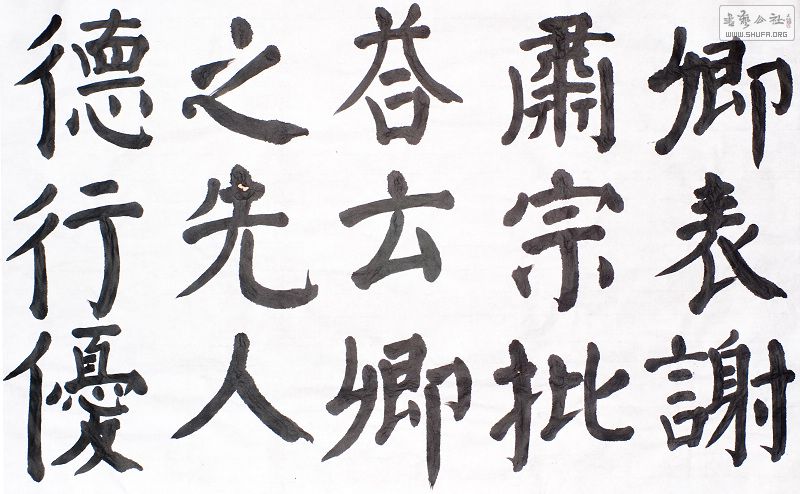 卿表謝
肅宗批
荅云卿
之先人
德行優
書藝公社
WWW.SHUFA.ORG